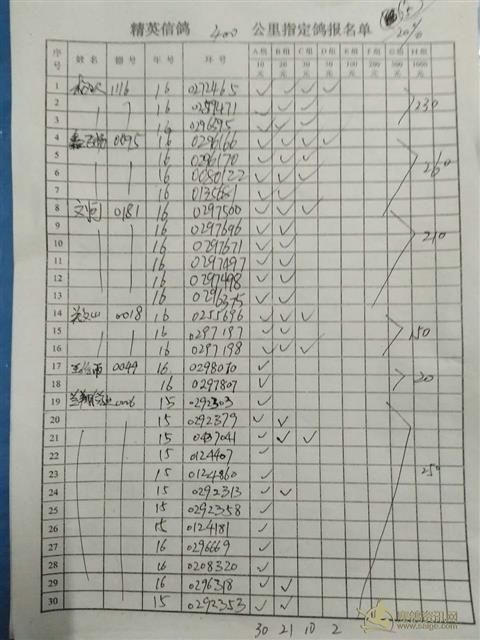 精英信鸽 400 公里指定鸽报名单
20%
序号 姓名 棚号 年号 环号 A组10元 B组20元 C组30元 D组50元 E组100元 F组200元 G组500元 H组1000元
1 1116 16 0272465 ✓ ✓ ✓ ✓
2 16 0259471 ✓ ✓ ✓
3 16 0296695 ✓ ✓ ✓ 230
4 0095 16 0296166 ✓ ✓ ✓ ✓
5 16 0296170 ✓ ✓ ✓
6 16 0050122 ✓ ✓ ✓ 260
7 16 0135681 ✓ ✓
8 0181 16 0297500 ✓ ✓ ✓
9 16 0297696 ✓ ✓
10 16 0297671 ✓ ✓ 210
11 16 0297497 ✓ ✓
12 16 0297498 ✓ ✓
13 16 0296375 ✓ ✓
14 0018 16 0255696 ✓ ✓ ✓
15 16 0297197 ✓ ✓ 150
16 16 0297198 ✓ ✓ ✓
17 0049 16 0298070 ✓
18 16 0297807 ✓ 20
19 15 0292303 ✓
20 15 0292379 ✓ ✓
21 15 0437041 ✓ ✓
22 15 0124407 ✓
23 15 0124860 ✓ 250
24 15 0292313 ✓ ✓
25 15 0292358 ✓
26 15 0124181 ✓
27 16 0296669 ✓
28 16 0208320 ✓
29 16 0296318 ✓ ✓
30 15 0292353 ✓ ✓
30 21 10 2
赛鸽资讯网
www.saige.com